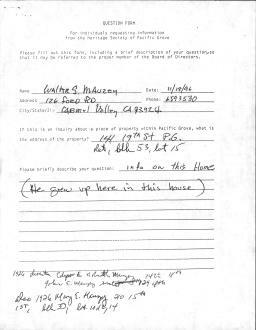 QUESTION FORM
for individuals requesting information
from the Heritage Society of Pacific Grove
Please fill out this form, including a brief description of your question, so
that it may be referred to the proper member of the Board of Directors.
Name Walter S. McAuzey Date: 11/18/96
Address 126 Ford RD. Phone: 6593530
City/State/Zip Carmel Valley CA 93924
If this is an inquiry about a piece of property within Pacific Grove, what is
the address of the property? 144 19th St P.G.
blk 53, lot 15
Please briefly describe your question: info on this Home
(He grew up here in this house)
1926
John C.
Also 1926 Mary E. 20 15th
1ST, blk